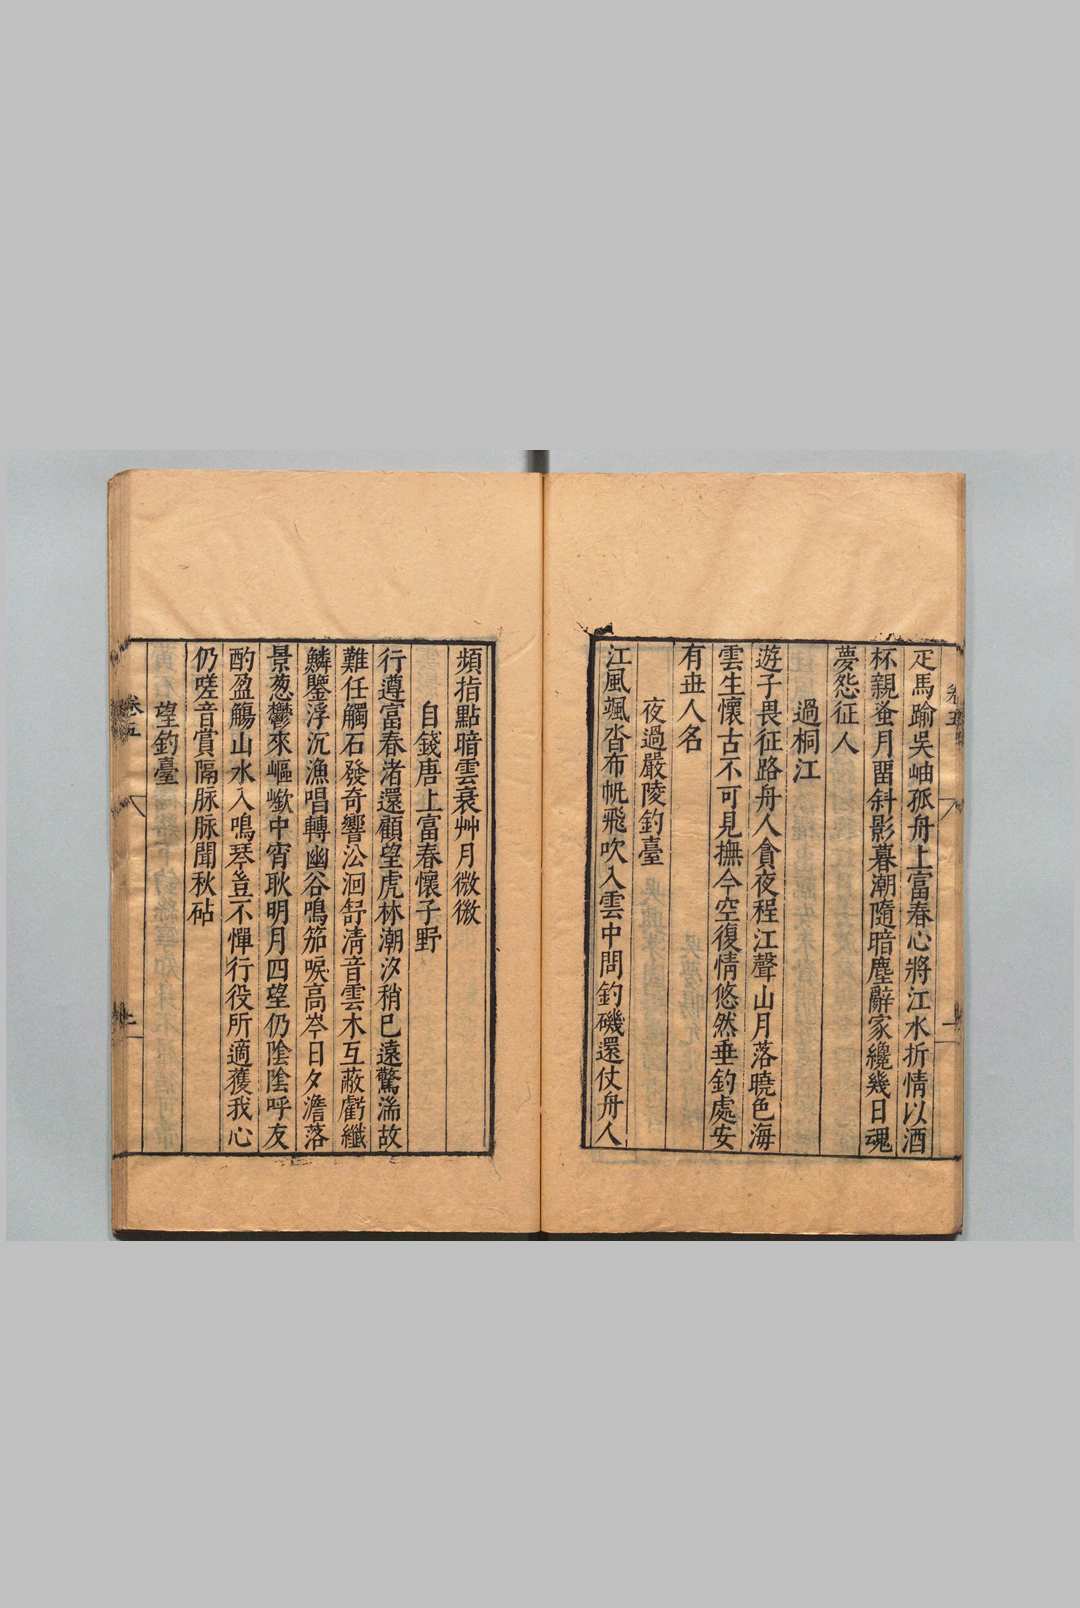 疋馬踰吳岫孤舟上富春心將江水折情以酒
杯親蚤月畱斜影暮潮隨暗塵辭家纔幾日魂
夢怨征人
過桐江
遊子畏征路舟人貪夜程江聲山月落曉色海
雲生懷古不可見撫今空復情悠然垂釣處安
有丗人名
夜過嚴陵釣臺
江風颯沓布帆飛吹入雲中問釣磯還仗舟人
頻指點暗雲衰艸月微微
自錢唐上富春懷子野
行遵富春渚還顧望虎林潮汐稍已遠驚湍故
難任觸石發奇響㳂洄舒清音雲木互蔽虧纖
鱗鑒浮沉漁唱轉幽谷鳴笳唳高岑日夕澹落
景葱鬱來嶇嶔中宵耿明月四望仍陰陰呼友
酌盈觴山水入鳴琴豈不憚行役所適獲我心
仍嗟音賞隔脉脉聞秋砧
望釣臺
卷五